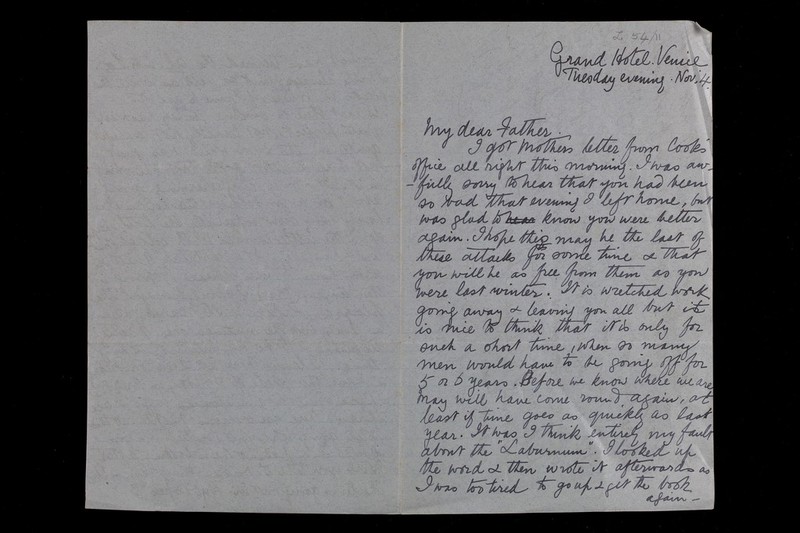 L 54/11
Grand Hotel. Venice
Tuesday evening. Nov. 4.
My dear Father.
I got Mothers letter from Cook's
office all right this morning. I was aw-
-fully sorry to hear that you had been
so bad that evening I left home, but
was glad to hear know you were better
again. I hope this may be the last of
these attacks for some time & that
you will be as free from them as you
were last winter. It is wretched work
going away & leaving you all but it
is nice to think that it is only for
such a short time, when so many
men would have to be going off for
5 or 6 years. Before we know where we are
May will have come round again, at
least if time goes as quickly as last
year. It was I think entirely my fault
about the "Laburnum". I looked up
the word & then wrote it afterwards as
I was too tired to go up & get the book
again -